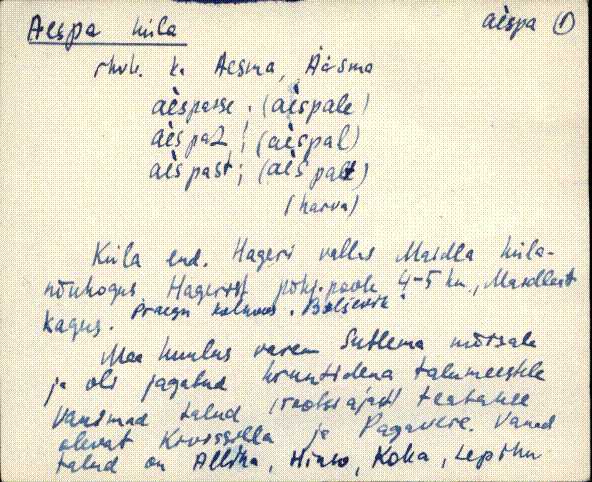 Aespa küla
aèspa ①
rhvk. k. Aesma, Ääsma
aèspasse; (aèspale)
aèspaz; (aèspal)
aèspast; (aèspalt)
(harva)
Küla end. Hageri vallas Maidla küla-
nõukogus Hagerist põhj. poole 4-5 km., Maidlast
kagus. Praegu kolhoos "Bolševik".
Maa kuulus varem Sutlema mõisale
ja oli jagatud kruntidena talumeestele
Vanimad talud rootsiajast teatakse
olevat ja Pagavere. Vanad
talud on Allika, Hinso, Koka, Lepiku